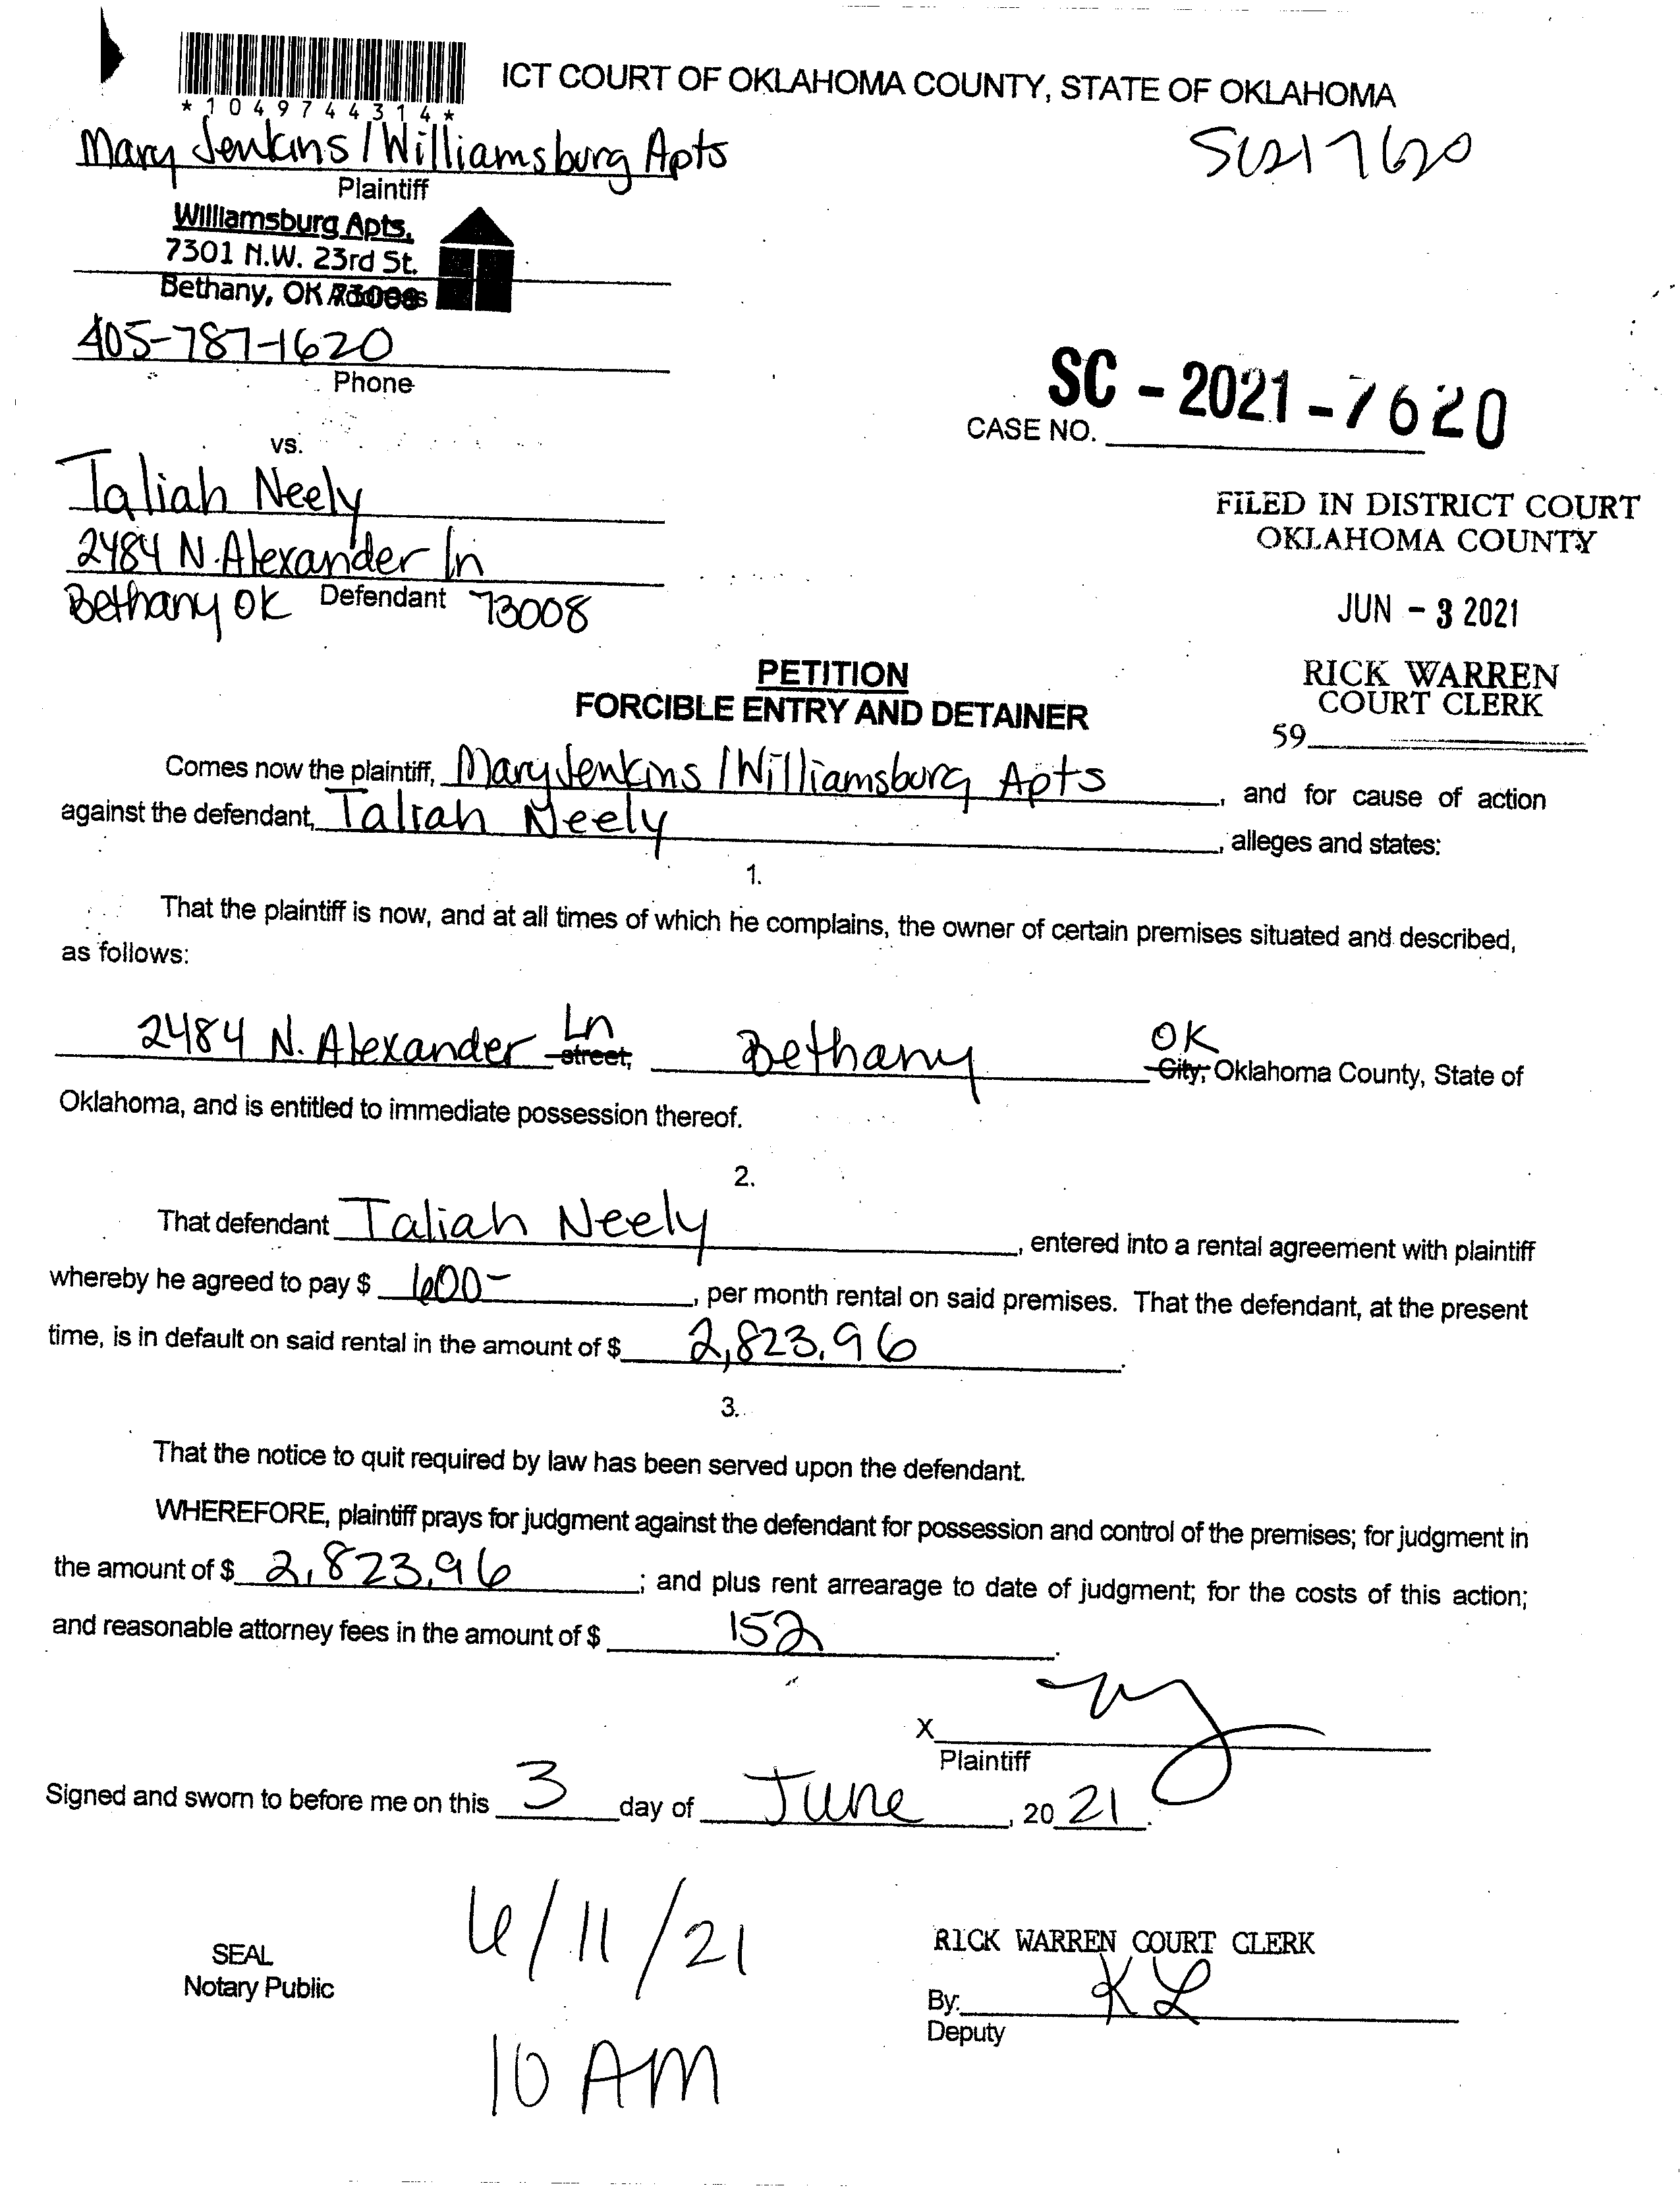 *1049744314*
ICT COURT OF OKLAHOMA COUNTY, STATE OF OKLAHOMA
Mary Jenkins / Williamsburg Apts
SC217620
Plaintiff
Williamsburg Apts.
7301 N.W. 23rd St.
Bethany, OK 73008
405-787-1620
Phone
SC - 2021 - 7620
CASE NO.
vs.
Taliah Neely
2484 N. Alexander Ln
Bethany OK Defendant 73008
FILED IN DISTRICT COURT
OKLAHOMA COUNTY
JUN - 3 2021
RICK WARREN
COURT CLERK
59
PETITION
FORCIBLE ENTRY AND DETAINER
Comes now the plaintiff, Mary Jenkins / Williamsburg Apts, and for cause of action
against the defendant, Taliah Neely, alleges and states:
1.
That the plaintiff is now, and at all times of which he complains, the owner of certain premises situated and described,
as follows:
2484 N. Alexander Ln street, Bethany OK City, Oklahoma County, State of
Oklahoma, and is entitled to immediate possession thereof.
2.
That defendant Taliah Neely, entered into a rental agreement with plaintiff
whereby he agreed to pay $ 600-, per month rental on said premises. That the defendant, at the present
time, is in default on said rental in the amount of $ 2,823.96.
3.
That the notice to quit required by law has been served upon the defendant.
WHEREFORE, plaintiff prays for judgment against the defendant for possession and control of the premises; for judgment in
the amount of $ 2,823.96; and plus rent arrearage to date of judgment; for the costs of this action;
and reasonable attorney fees in the amount of $ 152.
X
Plaintiff
Signed and sworn to before me on this 3 day of June, 20 21.
6/11/21
10 AM
SEAL
Notary Public
RICK WARREN COURT CLERK
By: KL
Deputy